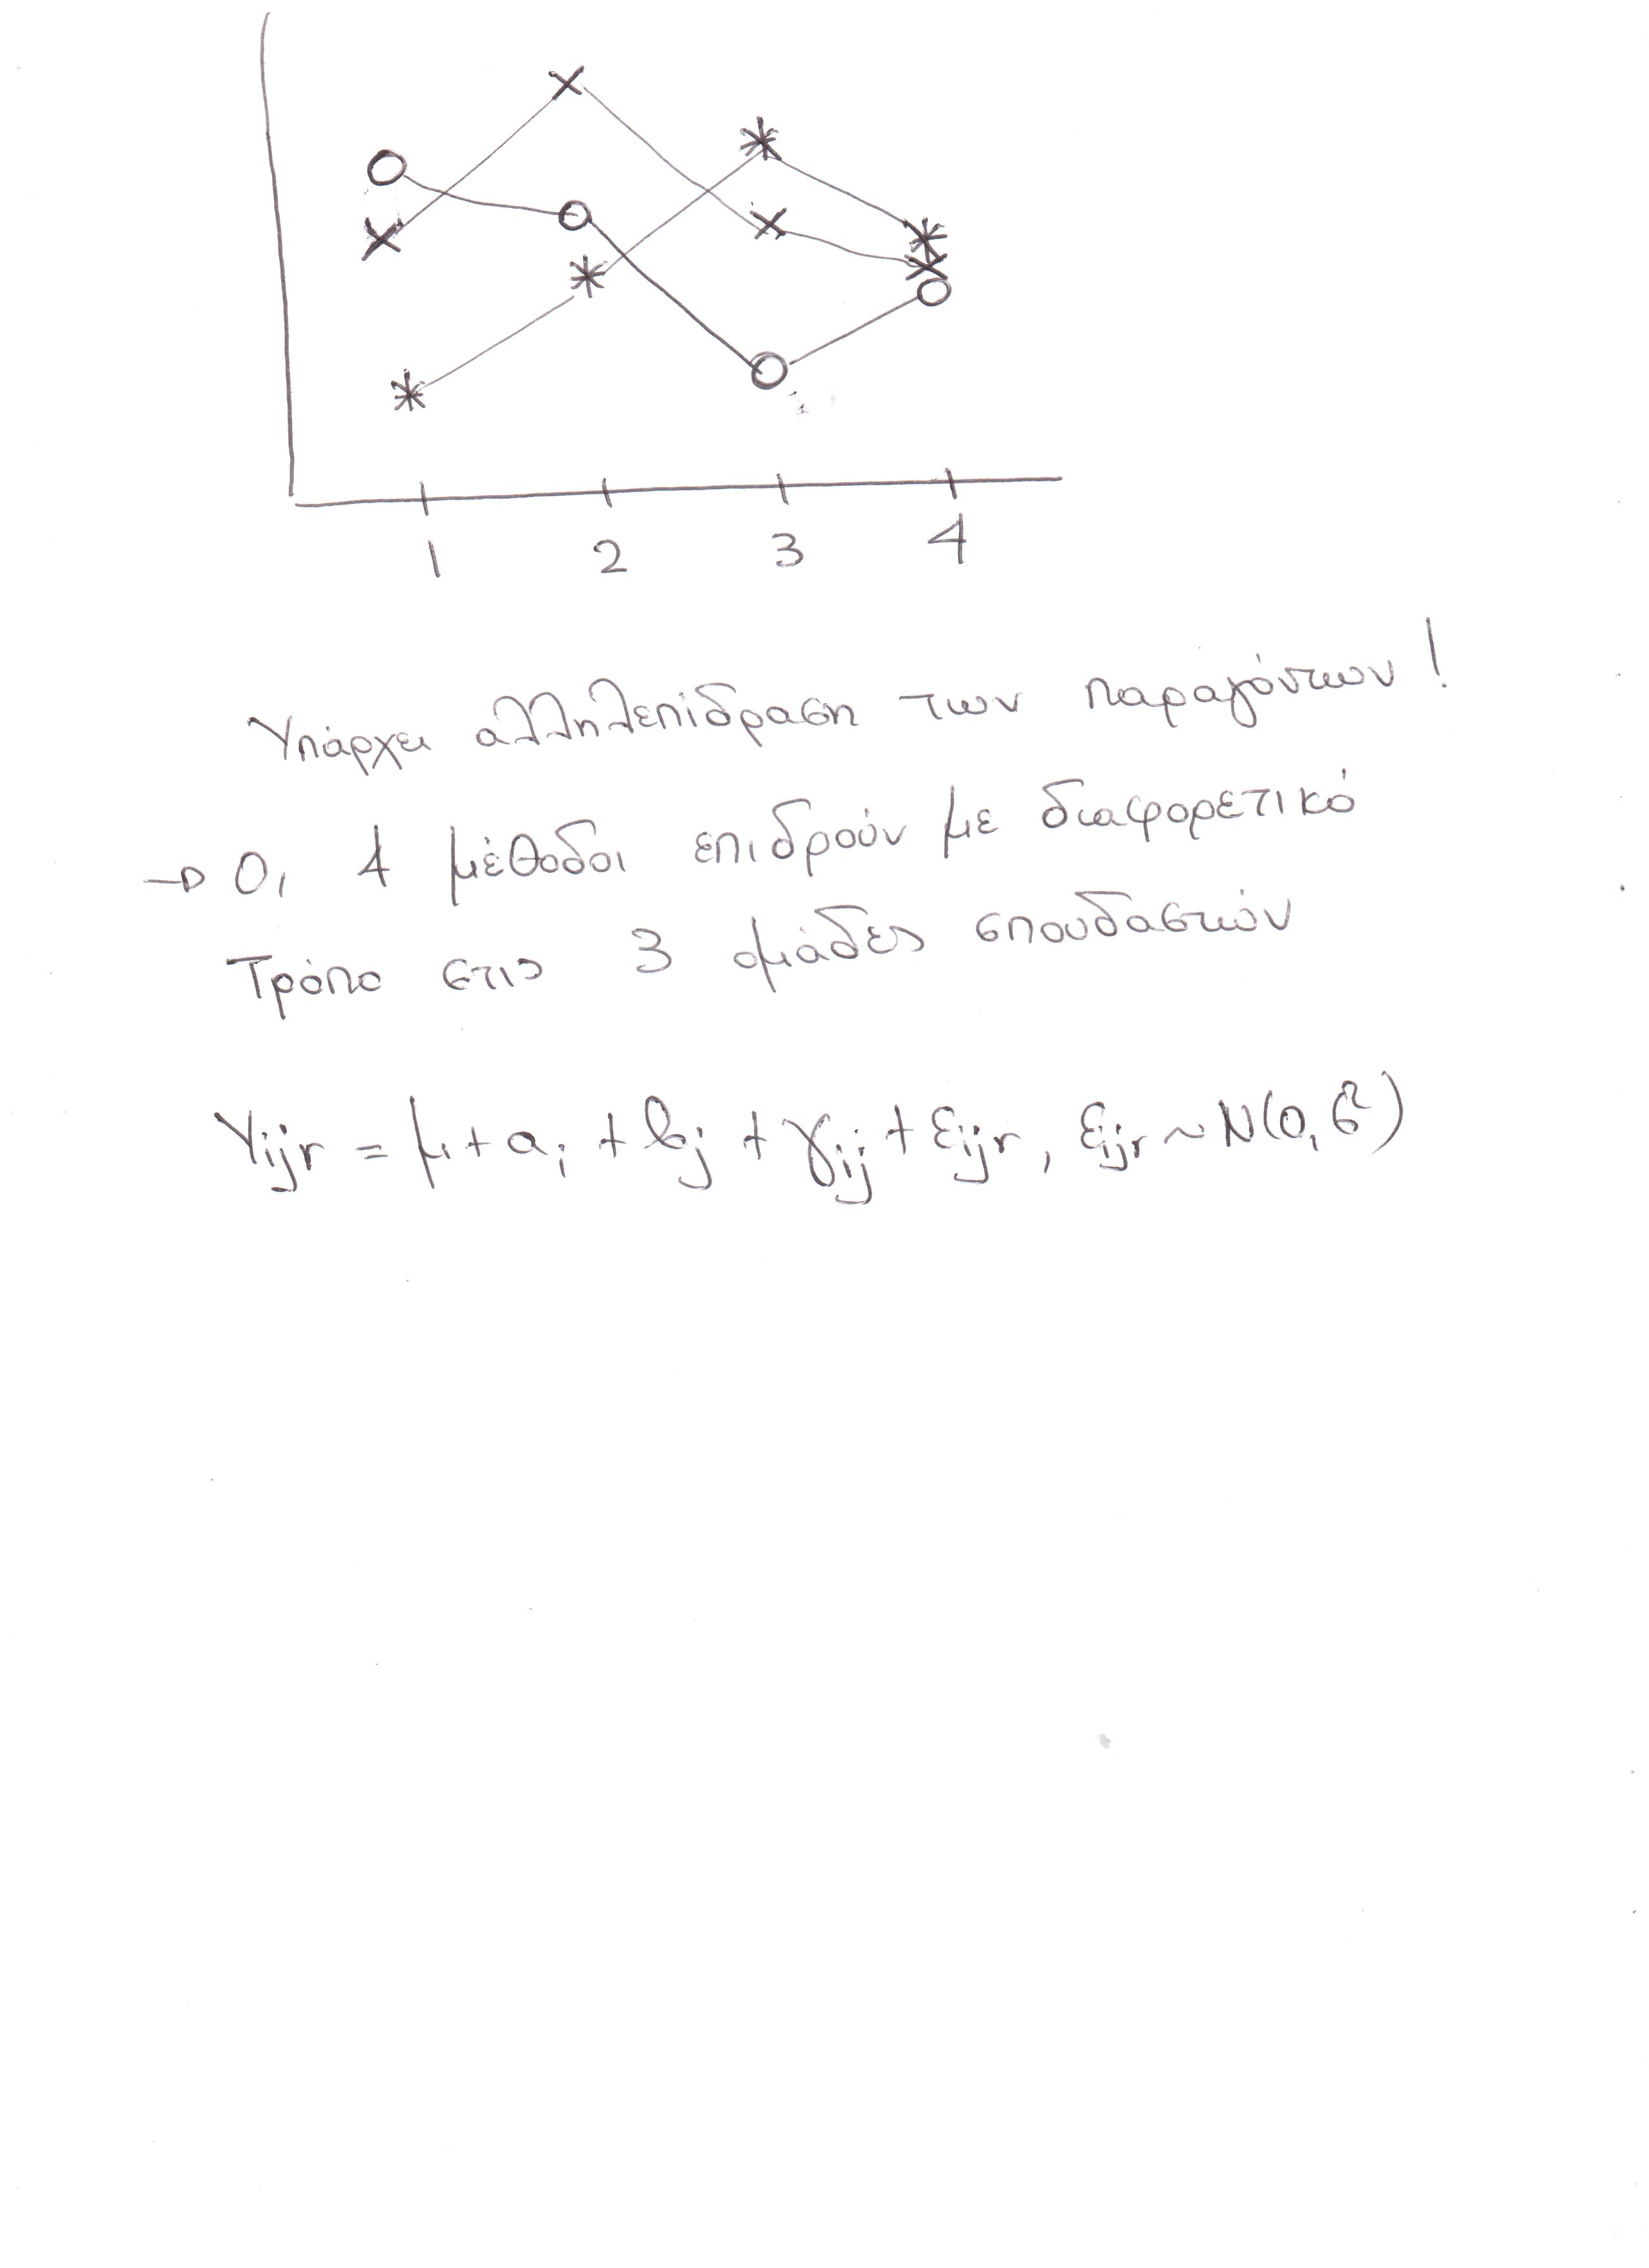 1 2 3 4
Υπάρχει αλληλεπίδραση των παραγόντων!
→ Οι 4 μέθοδοι επιδρούν με διαφορετικό
Τρόπο στις 3 ομάδες σπουδαστών
Yijr = μ + ai + bj + γij + εijr, εijr ~ N(0, σ²)